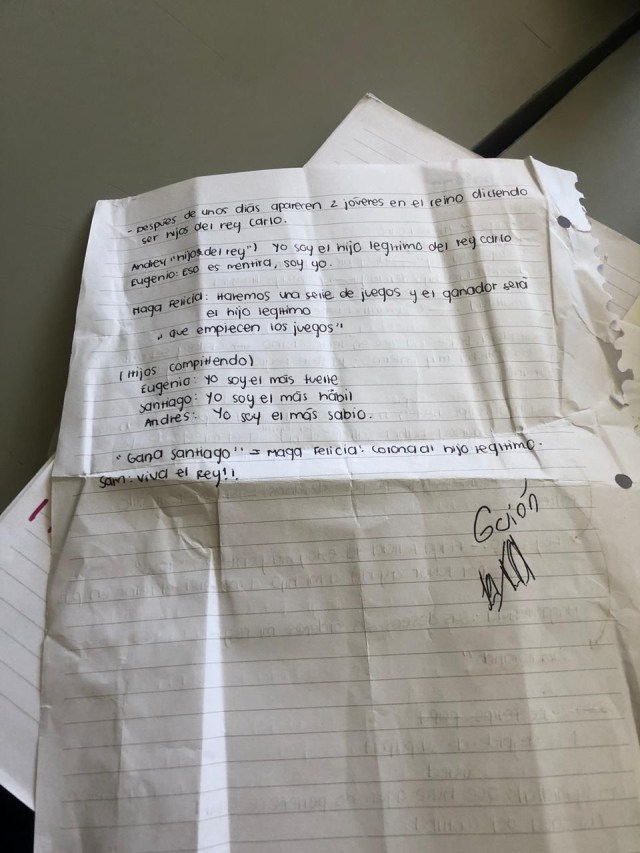 - Después de unos días aparecen 2 jóvenes en el reino diciendo
ser hijos del rey Carlo.
Andrey "hijos del rey") Yo soy el hijo legitimo del rey carlo
Eugenio: Eso es mentira, soy yo.
Maga Felicia: Haremos una serie de juegos y el ganador sera
el hijo legitimo
"que empiecen los juegos"
(Hijos compitiendo)
Eugenio: Yo soy el más fuerte
Santiago: Yo soy el más hábil
Andrés: Yo soy el más sabio.
"Gana Santiago" = Maga Felicia: Corona al hijo legitimo.
Sam: Viva el Rey!!
Guión